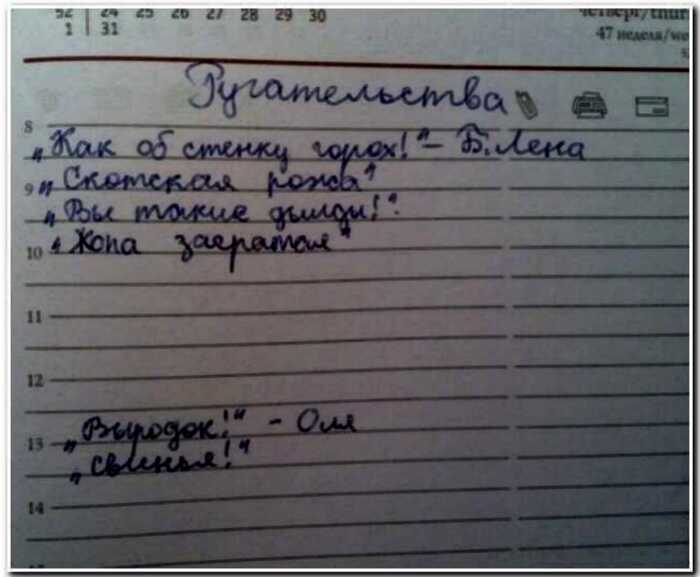 52 24 25 26 27 28 29 30
1 31
четверг/thur
47 неделя/we
Ругательства
8
„Как об стенку горох!" - Б. Лена
9 „Скотская рожа"
„Вы такие дылди!"
10 "Жопа засратая"
11
12
„Выродок!" - Оля
13
„Свинья!"
14